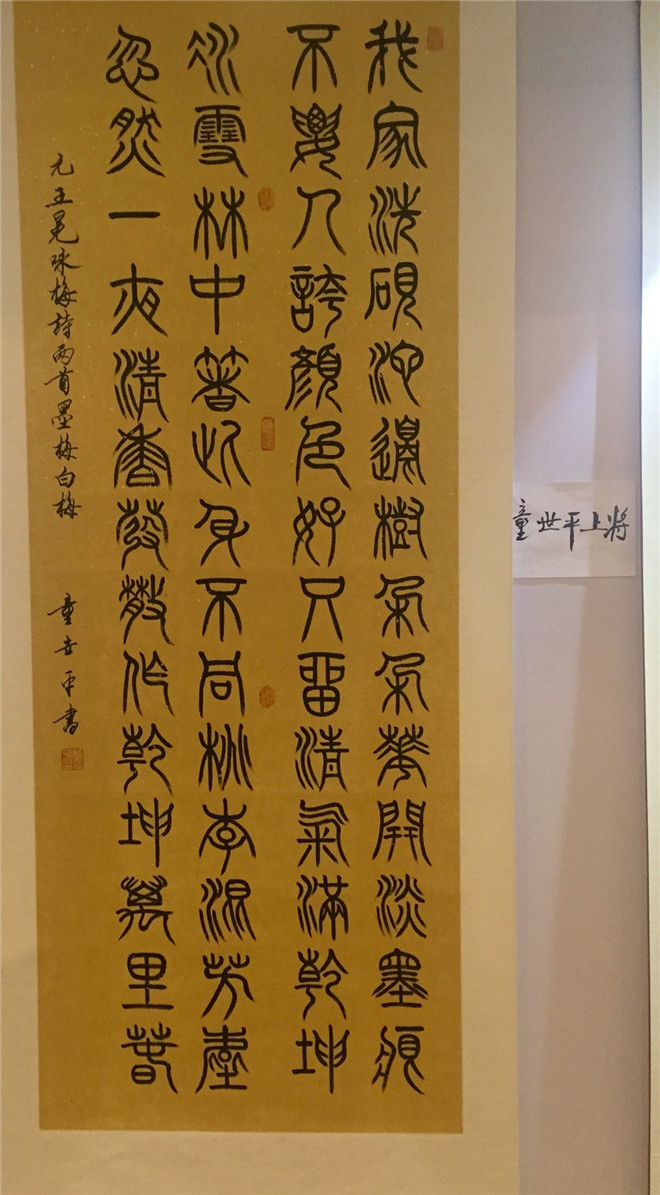 我家洗硯池邊樹朵朵華開淡墨痕
不要人誇顏色好只留清氣滿乾坤
冰雪林中著此身不同桃李混芳塵
忽然一夜清香發散作乾坤萬里春
元王冕咏梅詩兩首墨梅白梅 童世平書
童世平上將